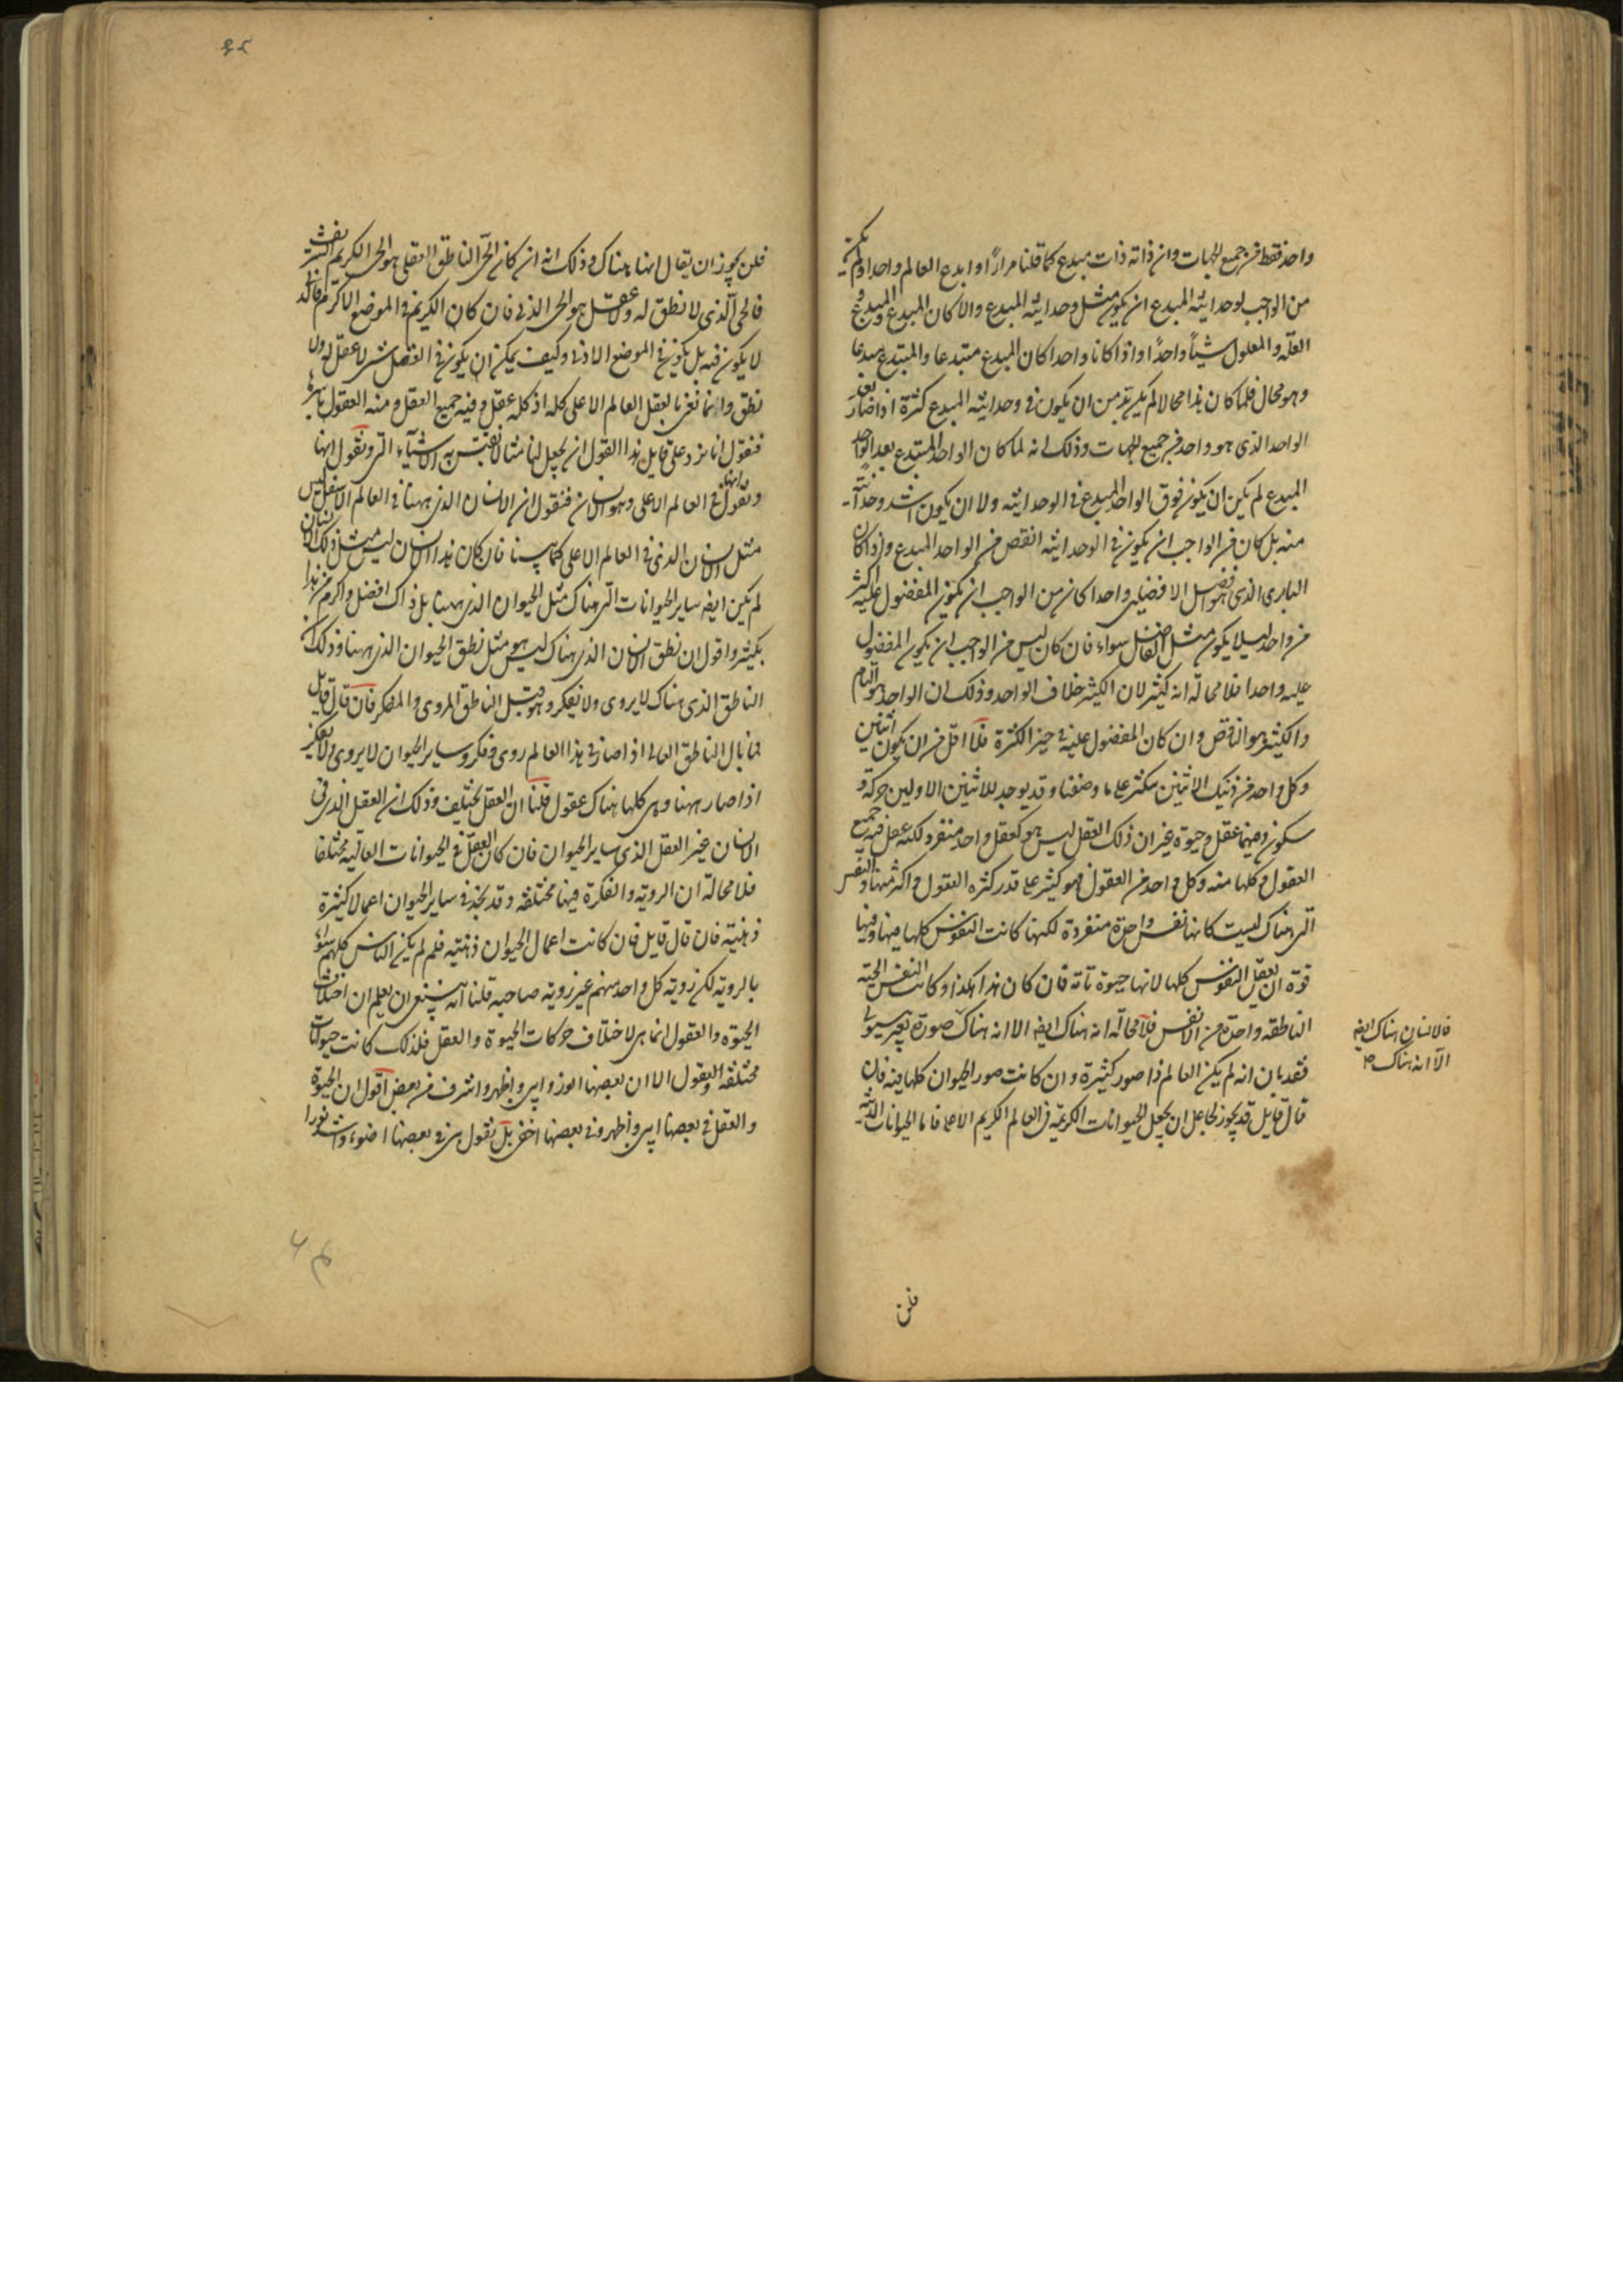 واحد فقط من جميع الجهات وان ذاته ذات مبدع كما قلنا مرارًا او ابدع العالم واحدا ولم يكن
من الواجب لوحدانية المبدع ان يكون مثل وحدانية المبدع والا كان المبدع والمبدع و
العلة والمعلول شيئًا واحدًا واذا كانا واحدا كان المبدع مبتدعا والمبتدع مبدعا
وهو محال فلما كان هذا محالا لم يكن بد من ان يكون في وحدانية المبدع كثرة اذا صار بعد
الواحد الذي هو واحد من جميع الجهات وذلك انه لما كان الواحد المبتدع بعد الواحد
المبدع لم يكن ان يكون فوق الواحد المبدع في الوحدانية ولا ان يكون اشد وحدانية
منه بل كان من الواجب ان يكون في الوحدانية انقص من الواحد المبدع واذا كان
الباري الذي هو افضل الافضلين واحدا كان من الواجب ان يكون المفضول عليه اكثر
من واحد ليلا يكون مثل الفاضل سواء فان كان ليس من الواجب ان يكون المفضول
عليه واحدا فلا محالة انه كثير لان الكثير خلاف الواحد وذلك ان الواحد هو التام
والكثير هو الناقص وان كان المفضول عليه في حيز الكثرة فلا اقل من ان يكون اثنين
وكل واحد من ذينك الاثنين يتكثر على ما وصفنا وقد يوجد للاثنين الاولين حركة و
سكون وفيهما عقل وحيوة غير ان ذلك العقل ليس هو كعقل واحد منفرد لكنه عقل فيه جميع
العقول وكلها منه وكل واحد من العقول فهو كثير على قدر كثرة العقول واكثر منها والنفس
التي هناك ليست كانها نفس واحدة منفردة لكنها كانت النفوس كلها فيها وفيها
قوة ان تعقل النفوس كلها لانها حيوة تامة فان كان هذا هكذا وكانت النفس الحية
الناطقة واحدة من الانفس فلا محالة انه هناك ايضا الا انه هناك صورة بغير هيولى
فالانسان هناك ايضا
الا انه هناك صح
فقد بان انه لم يكن العالم ذا صور كثيرة وان كانت صور الحيوان كلها فيه فان
قال قايل قد يجوز لجاعل ان يجعل الحيوانات الكريمة في العالم الكريم الاعلى فاما الحيوانات الدنية
فلن
فلن يجوز ان يقال انها هناك وذلك انه ان كان الحي الناطق العقلي هو الحي الكريم الشريف
فالحي الذي لا نطق له ولا عقل هو الحي الدني فان كان الكريم في الموضع الاكرم فالدني
لا يكون فيه بل يكون في الموضع الادنى وكيف يمكن ان يكون في العقل شيء لا عقل له ولا
نطق وانما نعني بالعقل العالم الاعلى كله اذ كله عقل وفيه جميع العقل ومنه العقول باسرها
فنقول انا نريد على قايل هذا القول ان نجعل لنا مثالا نقيس به الاشياء التي ونقول انها
ونقول انها في العالم الاعلى وهو الانسان فنقول ان الانسان الذي ههنا في العالم الاسفل ليس
مثل الانسان الذي في العالم الاعلى كما بينا فان كان هذا الانسان ليس مثل ذلك الانسان
لم يكن ايضا ساير الحيوانات التي هناك مثل الحيوان الذي ههنا بل ذاك افضل واكرم من هذا
بكثير واقول ان نطق الانسان الذي هناك ليس هو مثل نطق الحيوان الذي ههنا وذلك ان
الناطق الذي هناك لا يروي ولا يفكر وهو قبل الناطق المروي والمفكر فان قال قايل
فما بال الناطق العالي اذا صار في هذا العالم روى وفكر وساير الحيوان لا يروي ولا يفكر
اذا صار ههنا وهي كلها هناك عقول قلنا ان العقل يختلف وذلك ان العقل الذي في
الانسان غير العقل الذي ساير الحيوان فان كان العقل في الحيوانات العالية مختلفا
فلا محالة ان الروية والفكرة فيها مختلفة وقد نجد في ساير الحيوان اعمالا كثيرة
ذهنية فان قال قايل فان كانت اعمال الحيوان ذهنية فلم لم يكن الناس كلهم سواء
بالروية لكن روية كل واحد منهم غير روية صاحبه قلنا انه ينبغي ان يعلم ان اختلاف
الحيوة والعقول انما هي لاختلاف حركات الحيوة والعقل فلذلك كانت حيوانات
مختلفة والعقول الا ان بعضها انور وابين واظهر واشرف من بعض اقول ان الحيوة
والعقل في بعضها ابين واظهر وفي بعضها اخفى بل نقول هي في بعضها اضوء واشد نورا